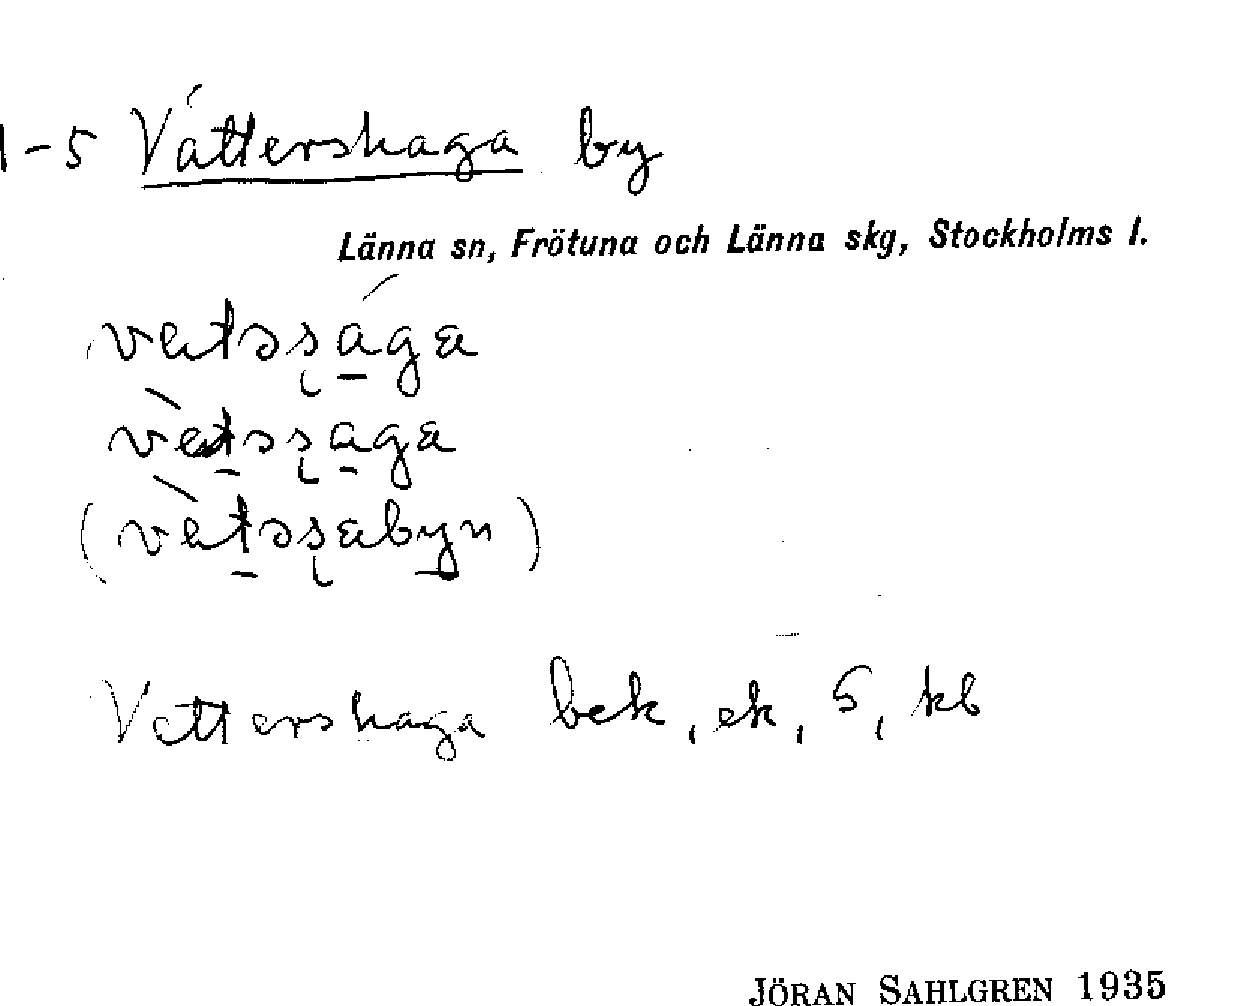 1-5 Vättershaga by
Länna sn, Frötuna och Länna skg, Stockholms l.
vetəsága
vètəsaga
(vètəsabyn)
Vettershaga bek, ek, 5, kb
JÖRAN SAHLGREN 1935